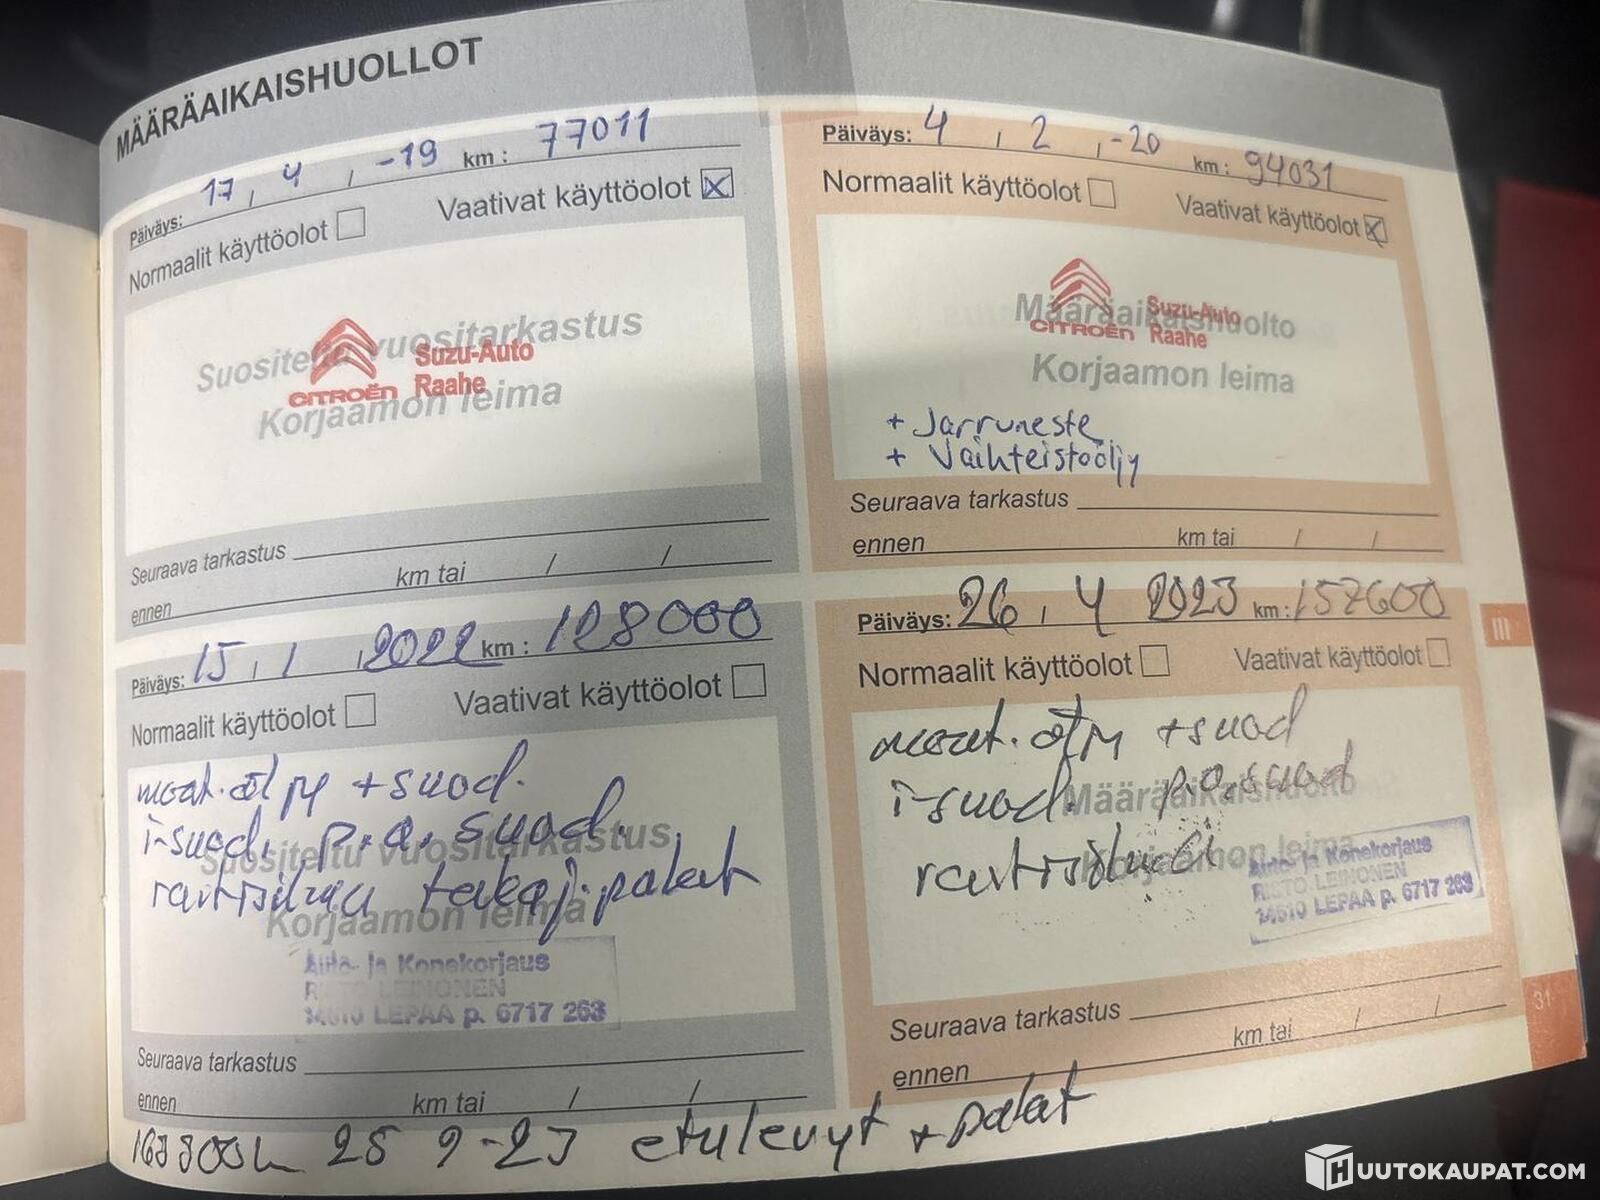 MÄÄRÄAIKAISHUOLLOT
Päiväys: 17, 4, -19 km: 77011
Normaalit käyttöolot Vaativat käyttöolot X
Suositeltu vuositarkastus
Korjaamon leima
CITROËN
Suzu-Auto
Raahe
Seuraava tarkastus
ennen km tai / /
Päiväys: 4, 2, -20 km: 94031
Normaalit käyttöolot Vaativat käyttöolot X
Määräaikaishuolto
Korjaamon leima
CITROËN
Suzu-Auto
Raahe
+ Jarruneste
+ Vaihteistoöljy
Seuraava tarkastus
ennen km tai / /
Päiväys: 15, 1, 2022 km: 128000
Normaalit käyttöolot Vaativat käyttöolot
moot. öljy + suod.
i-suod. p.a. suod.
raitisilma takaj. palat
Suositeltu vuositarkastus
Korjaamon leima
Auto- ja Konekorjaus
RISTO LEINONEN
14610 LEPAA p. 6717 263
Seuraava tarkastus
ennen km tai / /
Päiväys: 26, 4 2023 km: 157600
Normaalit käyttöolot Vaativat käyttöolot
moot. öljy + suod
i-suod. p.a. suod
raitisilma
Määräaikaishuolto
Korjaamon leima
Auto- ja Konekorjaus
RISTO LEINONEN
14610 LEPAA p. 6717 263
Seuraava tarkastus
ennen km tai / /
25 9-23 etulevyt + palat
III
31
HUUTOKAUPAT.COM